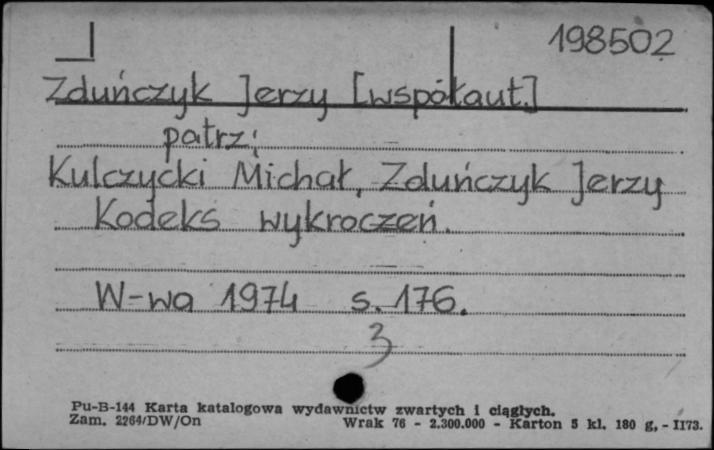 198502
Zduńczyk Jerzy [współaut.]
patrz:
Kulczycki Michał, Zduńczyk Jerzy
Kodeks wykroczeń.
W-wa 1974 s. 176.
3
Pu-B-144 Karta katalogowa wydawnictw zwartych i ciągłych.
Zam. 2264/DW/On Wrak 76 - 2.300.000 - Karton 5 kl. 180 g. - II73.